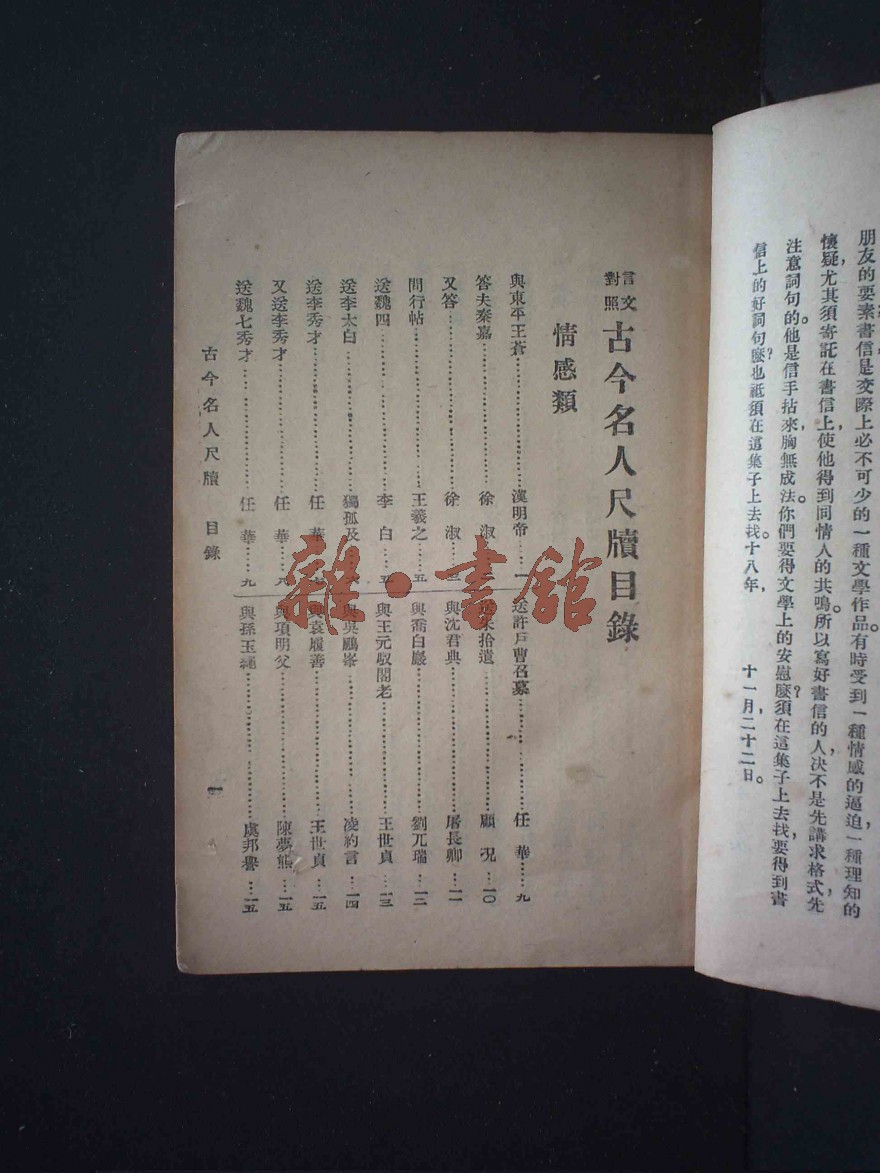 朋友的要素，書信是交際上必不可少的一種文學作品。有時受到一種情感的逼迫一種理知的
懷疑，尤其須寄託在書信上，使他得到同情人的共鳴。所以寫好書信的人，決不是先講求格式，先
注意詞句的。他是信手拈來，胸無成法，你們要得文學上的安慰麼？須在這集子上去找，要得到書
信上的好詞句麼？也祇須在這集子上去找。十八年，十一月，二十二日。
言文對照 古今名人尺牘目錄
情感類
與東平王蒼……漢明帝…一
答夫秦嘉……徐淑
又答……徐淑…三
問行帖……王羲之…五
送魏四……李白…五
送李太白……獨孤及
送李秀才……任華
又送李秀才……任華…九
送魏七秀才……任華…九
送許戶曹召墓……任華…九
送朱拾遺……顧况…一〇
與沈君典……屠長卿…一一
與喬白巖……劉兀瑞…一二
與王元馭閣老……王世貞…一三
與吳鵬峯……凌約言…一四
與袁履善……王世貞…一五
與項明父……陳夢熊…一五
與孫玉繩……虞邦譽…一五
古今名人尺牘 目錄
一
雜·書館